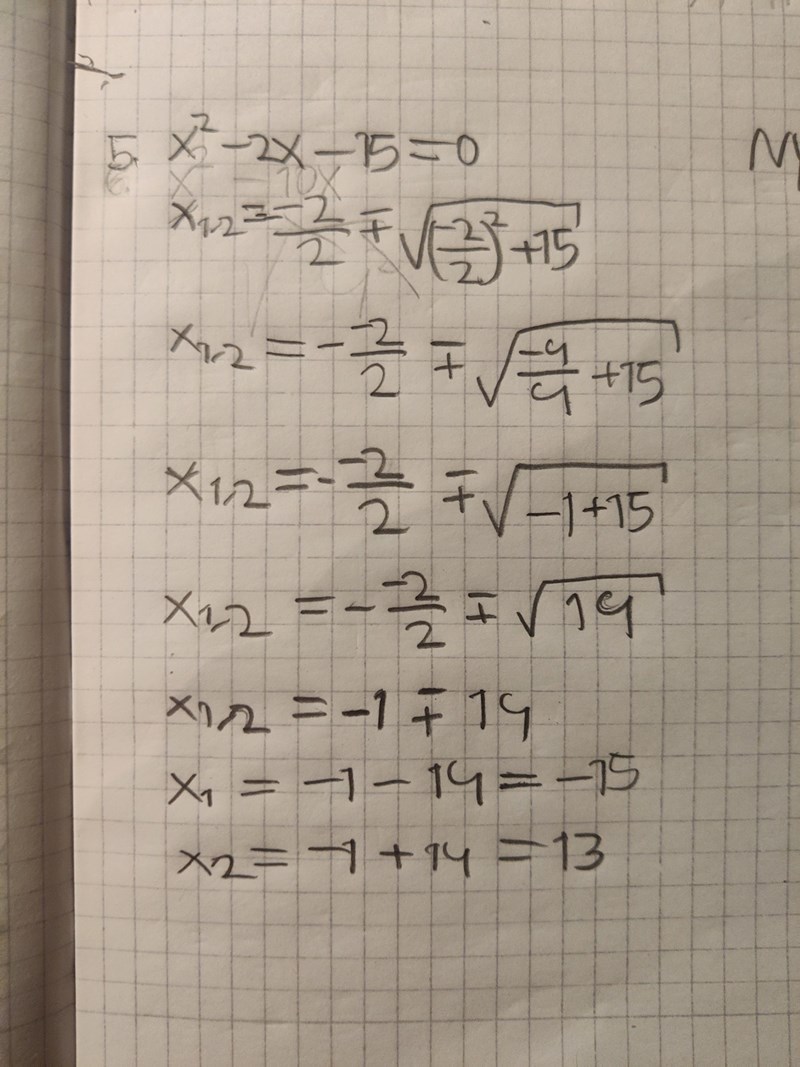 5. x² - 2x - 15 = 0
x₁,₂ = -2/2 ∓ √((-2/2)² + 15)
x₁,₂ = - -2/2 ∓ √(-4/4 + 15)
x₁,₂ = - -2/2 ∓ √(-1 + 15)
x₁,₂ = - -2/2 ∓ √14
x₁,₂ = -1 ∓ 14
x₁ = -1 - 14 = -15
x₂ = -1 + 14 = 13